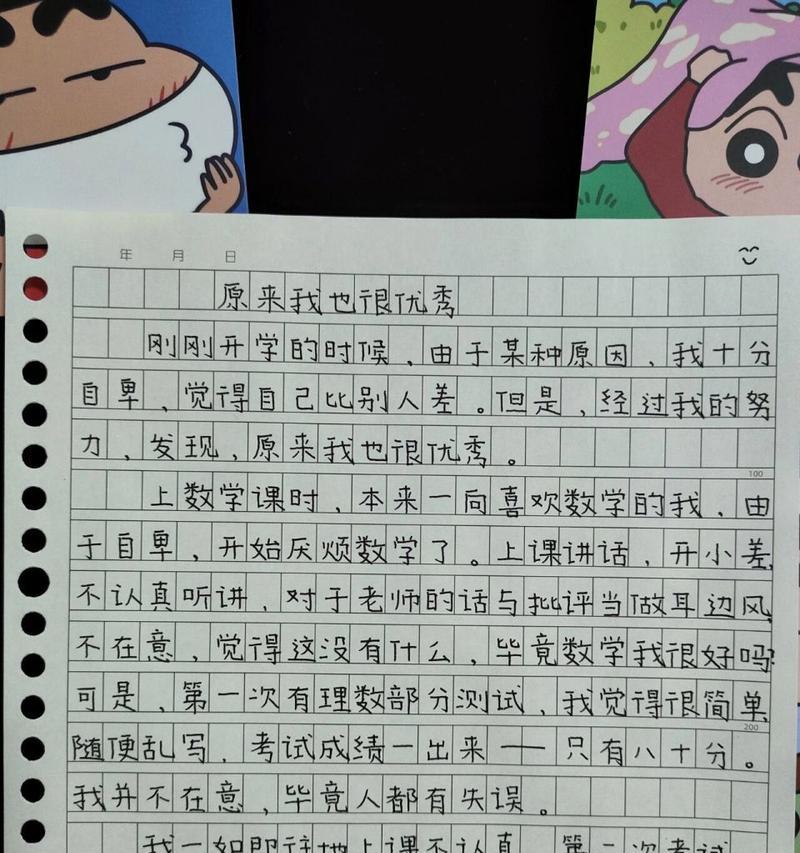 年 月 日
原来我也很优秀
刚刚开学的时候，由于某种原因，我十分
自卑，觉得自己比别人差。但是，经过我的努
力，发现，原来我也很优秀。
100
上数学课时，本来一向喜欢数学的我，由
于自卑，开始厌烦数学了。上课讲话，开小差，
不认真听讲，对于老师的话与批评当做耳边风，
不在意，觉得这没有什么，毕竟数学我很好吗？
可是，第一次有理数部分测试，我觉得很简单，
200
随便乱写，考试成绩一出来——只有八十分。
我并不在意，毕竟人都有失误。
我一如即往地上课不认真 第二次考试